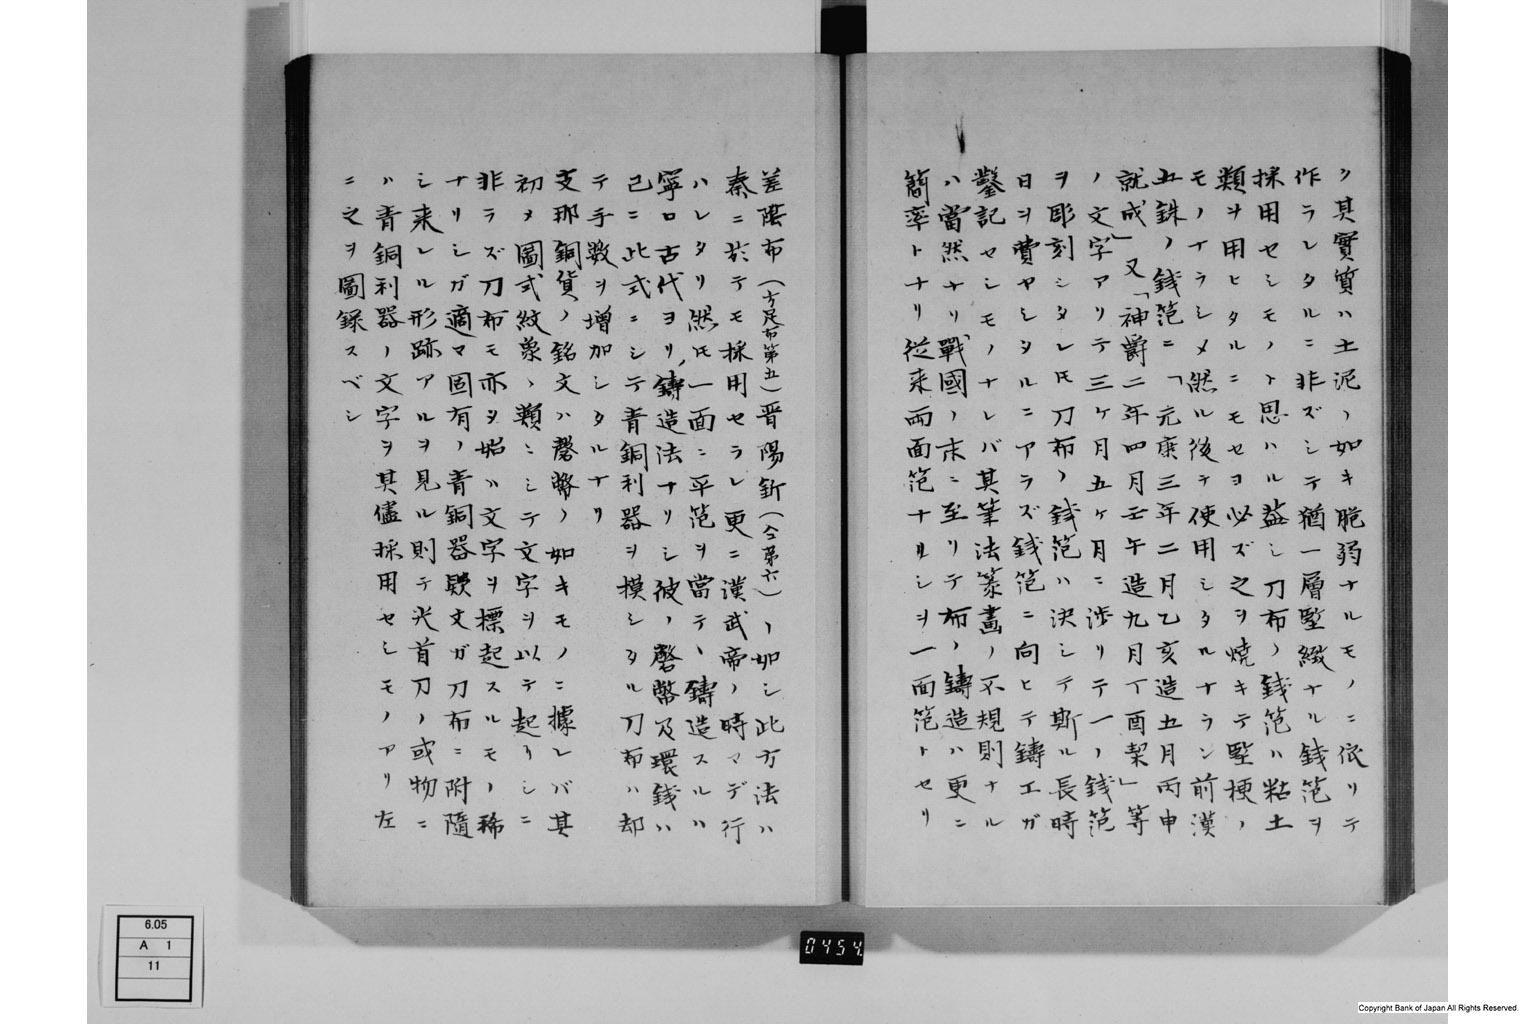 ク其實質ハ土泥ノ如キ脆弱ナルモノニ依リテ
作ラレタルニ非ズシテ猶一層堅緻ナル錢笵ヲ
採用セシモノト思ハル蓋シ刀布ノ錢笵ハ粘土
類ヲ用ヒタルニモセヨ必ズ之ヲ焼キテ堅梗ノ
モノナラシメ然ル後チ使用シタルナラン前漢
五銖ノ錢笵ニ「元康三年二月乙亥造五月丙申
就成」又「神爵二年四月壬午造九月丁酉絜」等
ノ文字アリテ三ケ月五ケ月ニ渉リテ一ノ錢笵
ヲ彫刻シタレㇳモ刀布ノ錢笵ハ決シテ斯ル長時
日ヲ費ヤシタルニアラズ錢笵ニ向ヒテ鑄工ガ
鑿記セシモノナレバ其筆法篆畫ノ不規則ナル
ハ當然ナリ戰國ノ末ニ至リテ布ノ鑄造ハ更ニ
簡率トナリ従来両面笵ナルシヲ一面笵トセリ
差陰布(方足布第五)晋陽釿(仝第六)ノ如シ此方法ハ
秦ニ於テモ採用セラレ更ニ漢武帝ノ時マデ行
ハレタリ然ㇳモ一面ニ平笵ヲ當テヽ鑄造スルハ
寧ロ古代ヨリノ鑄造法ナリシ彼ノ磬幣及環錢ハ
已ニ此式ニシテ青銅利器ヲ模シタル刀布ハ却
テ手數ヲ増加シタルナリ
支那銅貨ノ銘文ハ磬幣ノ如キモノニ據レバ其
初メ圖式紋象ノ類ニシテ文字ヲ以テ起リシニ
非ラズ刀布モ亦タ始ハ文字ヲ標起スルモノ稀
ナリシガ適マ固有ノ青銅器欵文ガ刀布ニ附隨
シ来レル形跡アルヲ見ル則チ尖首刀ノ或物ニ
ハ青銅利器ノ文字ヲ其儘採用セシモノアリ左
ニ之ヲ圖錄スベシ
6.05
A 1
11
0454
Copyright Bank of Japan All Rights Reserved.